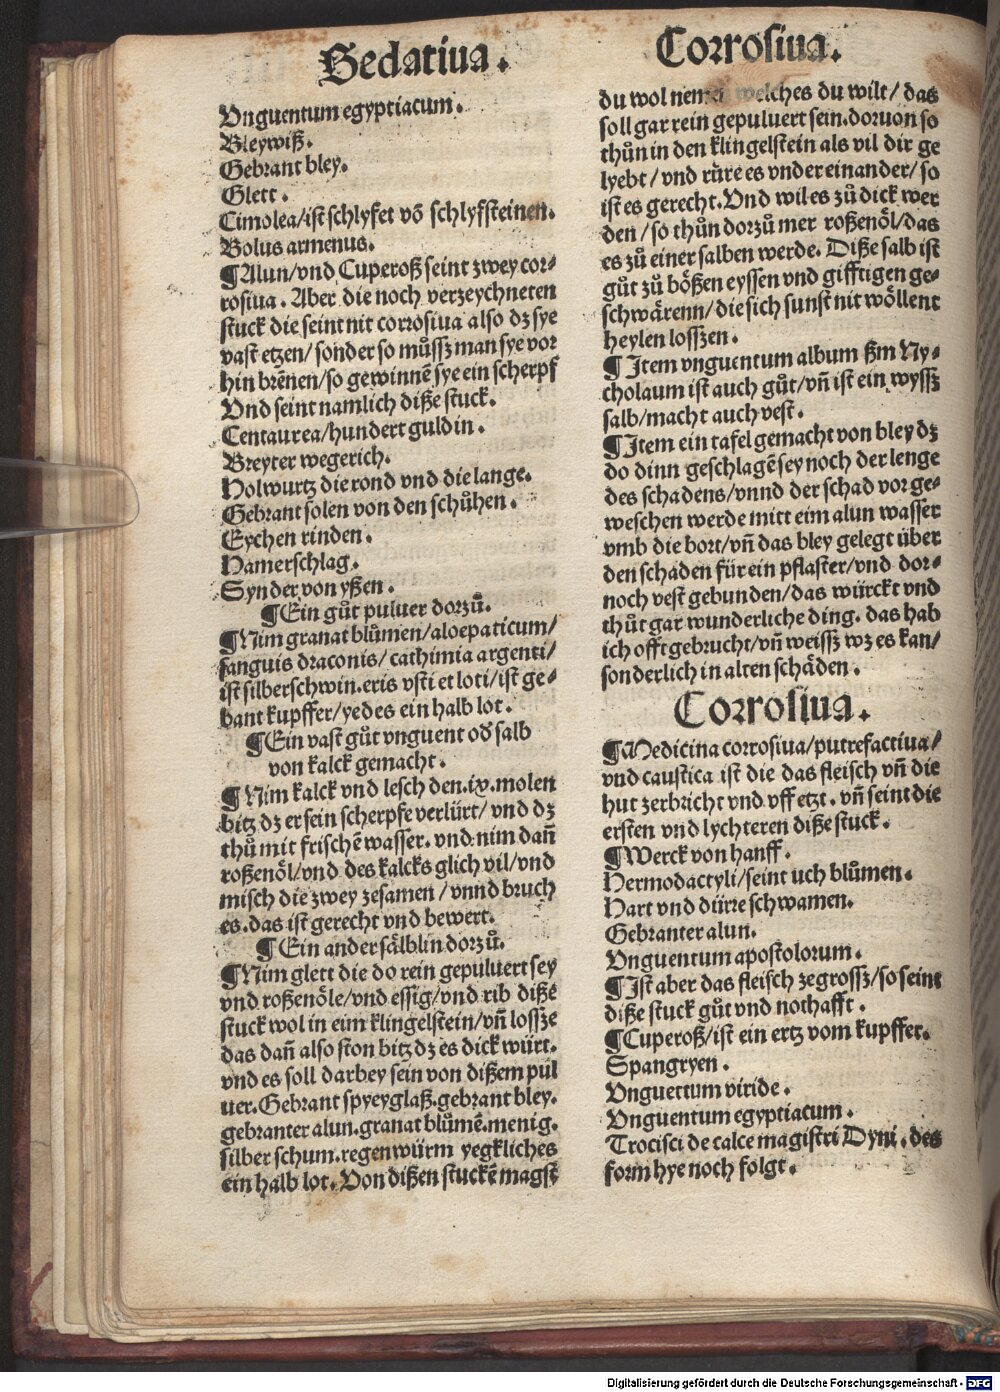 Sedatiua.
Vnguentum egyptiacum.
Bleywiß.
Gebrant bley.
Glett.
Cimolea/ist schlyfet vō schlyfsteinen.
Bolus armenus.
¶Alun/vnd Cuperoß seint zwey cor⸗
rosiua. Aber die noch verzeychneten
stuck die seint nit corrosiua also dz sye
vast etzen/sonder so můssz man sye vor
hin brēnen/so gewinnē sye ein scherpf
Vnd seint namlich diße stuck.
Centaurea/hundert guldin.
Breyter wegerich.
Holwurtz die rond vnd die lange.
Gebrant solen von den schůhen.
Eychen rinden.
Hamerschlag.
Synder von yßen.
¶Ein gůt puluer dorzů.
¶Nim granat blůmen/aloepaticum/
sanguis draconis/cathimia argenti/
ist silberschwin.eris vsti et loti/ist ge⸗
bant kupffer/yedes ein halb lot.
¶Ein vast gůt vnguent oď salb
von kalck gemacht.
¶Nim kalck vnd lesch den.ix.molen
bitz dz er sein scherpfe verlürt/vnd dz
thů mit frischē wasser.vnd nim dañ
roßenöl/vnd des kalcks glich vil/vnd
misch die zwey zesamen/vnnd bruch
es.das ist gerecht vnd bewert.
¶Ein ander sälblin dorzů.
¶Nim glett die do rein gepuluert sey
vnd roßenöle/vnd essig/vnd rib diße
stuck wol in eim klingelstein/vñ lossze
das dañ also ston bitz dz es dick würt.
vnd es soll darbey sein von dißem pul
uer.Gebrant spyeyglaß.gebrant bley.
gebranter alun.granat blůmē.menig.
silber schum.regenwürm yegkliches
ein halb lot.Von dißen stuckē magst
Corrosiua.
du wol nemen welches du wilt/das
soll gar rein gepuluert sein.doruon so
thůn in den klingelstein als vil dir ge
lyebt/vnd růre es vnder einander/so
ist es gerecht.Vnd wil es zů dick wer
den/so thůn dorzů mer roßenöl/das
es zů einer salben werde. Diße salb ist
gůt zů bößen eyssen vnd gifftigen ge⸗
schwärenn/die sich sunst nit wöllent
heylen losszen.
¶Item vnguentum album ßm Ny⸗
cholaum ist auch gůt/vñ ist ein wyssz
salb/macht auch vest.
¶Item ein tafel gemacht von bley dz
do dinn geschlagē sey noch der lenge
des schadens/vnnd der schad vor ge⸗
weschen werde mitt eim alun wasser
vmb die bort/vñ das bley gelegt über
den schaden für ein pflaster/vnd dor⸗
noch vest gebunden/das würckt vnd
thůt gar wunderliche ding. das hab
ich offt gebrucht/vñ weissz wz es kan/
sonderlich in alten schäden.
Corrosiua.
¶Medicina corrosiua/putrefactiua/
vnd caustica ist die das fleisch vñ die
hut zerbricht vnd vff etzt. vñ seint die
ersten vnd lychteren diße stuck.
¶Werck von hanff.
Hermodactyli/seint uch blůmen.
Hart vnd dürre schwamen.
Gebranter alun.
Vnguentum apostolorum.
¶Ist aber das fleisch ze grossz/so seint
diße stuck gůt vnd nothafft.
¶Cuperoß/ist ein ertz vom kupffer.
Spangryen.
Vnguettum viride.
Vnguentum egyptiacum.
Trocisci de calce magistri Dyni.des
form hye noch folgt.
Digitalisierung gefördert durch die Deutsche Forschungsgemeinschaft - DFG